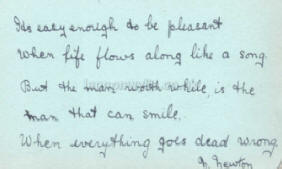 Its easy enough to be pleasant
When life flows along like a song.
But the man worth while, is the
man that can smile.
When everything goes dead wrong.
N. Newton